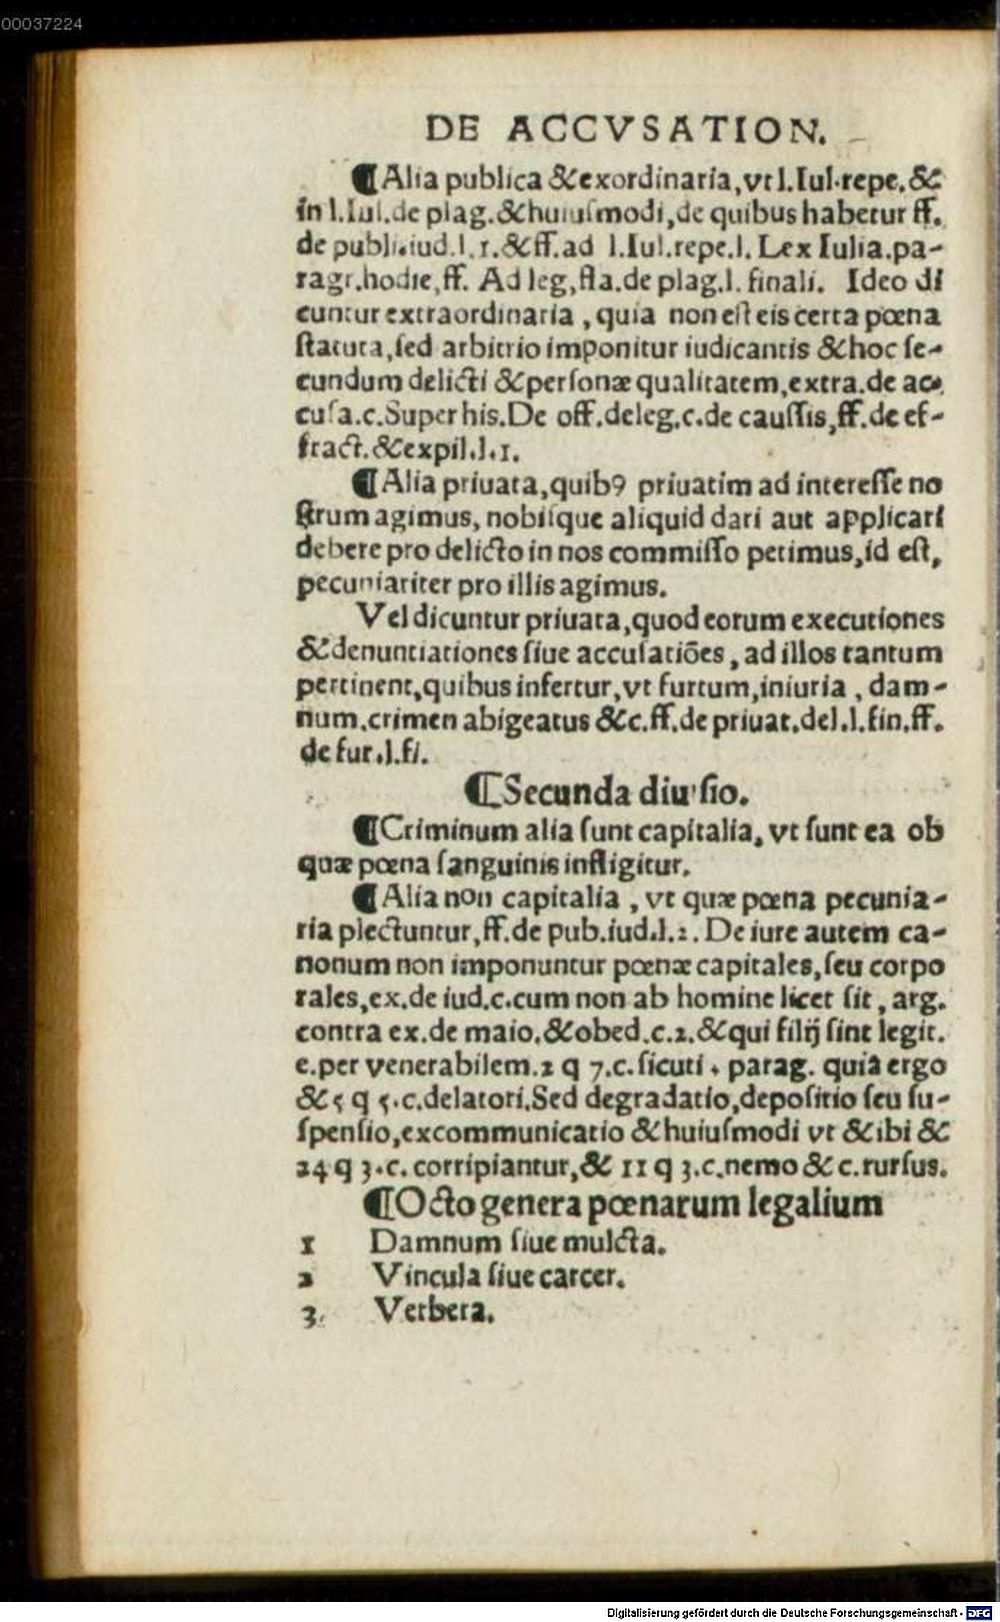 00037224
DE ACCVSATION.
¶Alia publica &exordinaria,vt l.Iul.repe.&
in l.Iul.de plag.&huiuſmodi,de quibus habetur ff.
de publi.iud.l.1.&ff.ad l.Iul.repe.l. Lex Iulia.pa-
ragr.hodie,ff. Ad leg,fla.de plag.l. finali. Ideo di
cuntur extraordinaria , quia non eſt eis certa pœna
ſtatuta,ſed arbitrio imponitur iudicantis &hoc ſe-
cundum delicti &perſonæ qualitatem,extra.de ac-
cuſa.c.Super his.De off.deleg.c.de cauſſis,ff.de ef-
fract.&expil.l.1.
¶Alia priuata,quibꝰ priuatim ad intereſſe no
ſtrum agimus, nobiſque aliquid dari aut applicari
debere pro delicto in nos commiſſo petimus,id eſt,
pecuniariter pro illis agimus.
Vel dicuntur priuata,quod eorum executiones
&denuntiationes ſiue accuſatiões , ad illos tantum
pertinent,quibus infertur,vt furtum,iniuria , dam-
num.crimen abigeatus &c.ff.de priuat.del.l.fin.ff.
de fur.l.fi.
¶Secunda diuiſio.
¶Criminum alia ſunt capitalia, vt ſunt ea ob
quæ pœna ſanguinis infligitur.
¶Alia non capitalia , vt quæ pœna pecunia-
ria plectuntur,ff.de pub.iud.l.2. De iure autem ca-
nonum non imponuntur pœnæ capitales,ſeu corpo
rales,ex.de iud.c.cum non ab homine licet ſit , arg.
contra ex.de maio.&obed.c.2.&qui filij ſint legit.
e.per venerabilem.2 q 7.c.ſicuti . parag. quia ergo
&5 q 5.c.delatori.Sed degradatio,depoſitio ſeu ſu-
ſpenſio,excommunicatio &huiuſmodi vt &ibi &
24 q 3.c. corripiantur,& 11 q 3.c.nemo & c.rurſus.
¶Octo genera pœnarum legalium
1 Damnum ſiue mulcta.
2 Vincula ſiue carcer.
3 Verbera.
Digitalisierung gefördert durch die Deutsche Forschungsgemeinschaft - DFG